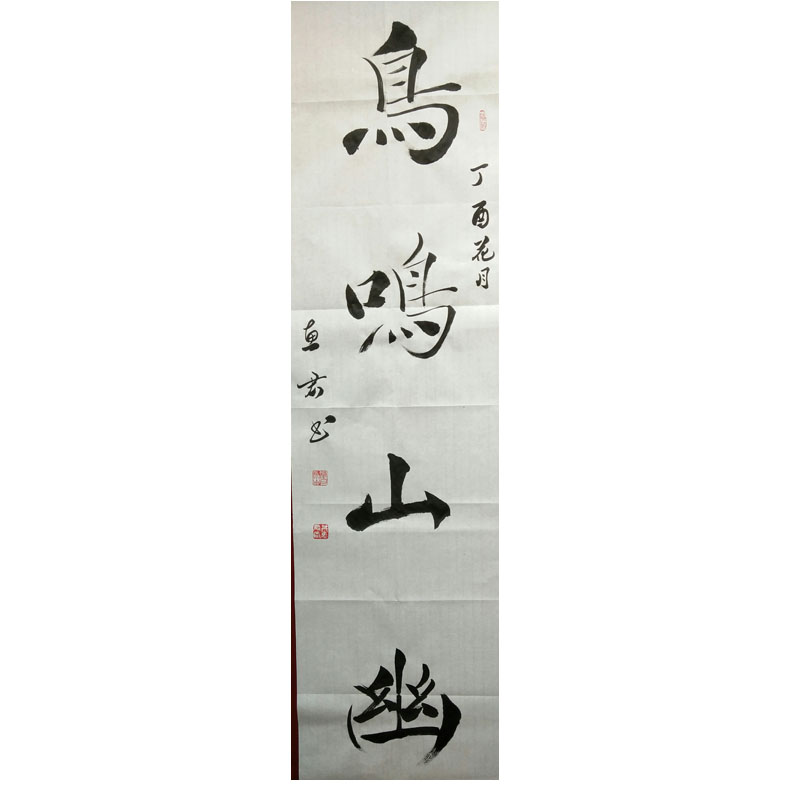 丁酉花月
鳥鳴山幽
惠君书